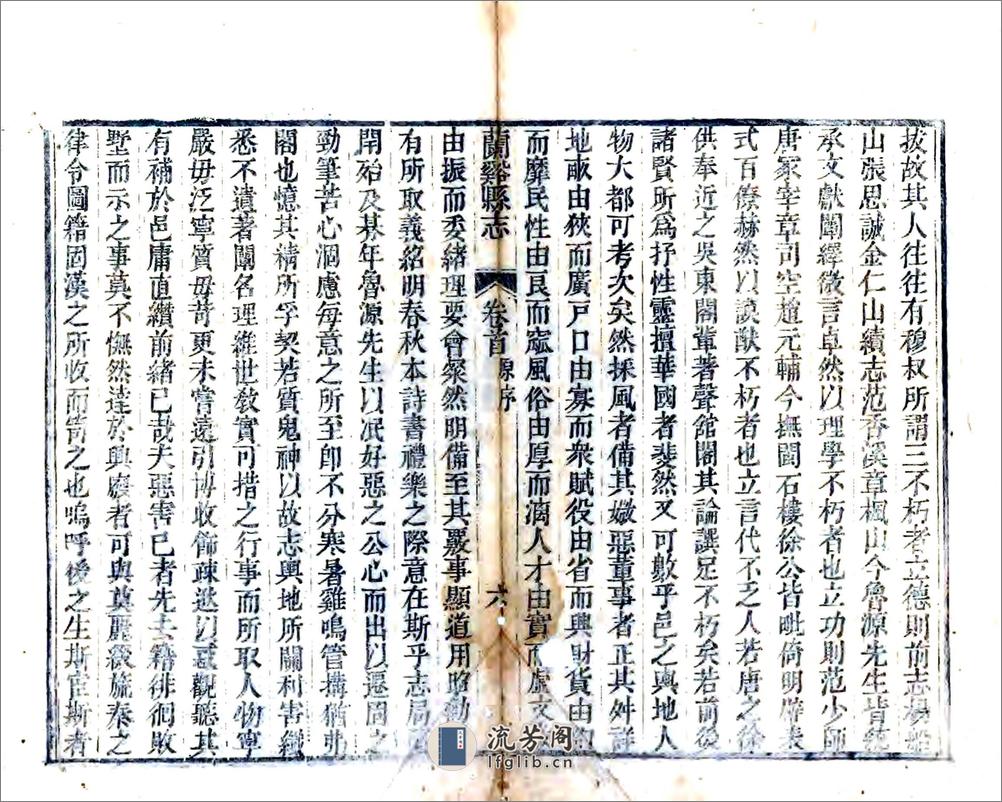 拔故其人往往有穆叔所謂三不朽者立德則前志楊船
山張思誠金仁山續志范香溪章楓山今魯源先生皆統
承文獻闡繹微言卓然以理學不朽者也立功則范少師
唐冢宰章司空趙元輔今撫閩石樓徐公皆毗倚明辟表
式百僚赫然以謨猷不朽者也立言代不乏人若唐之徐
供奉近之吳東閣輩著聲館閣其論譔足不朽矣若前後
諸賢所爲抒性靈擅華國者斐然又可數乎邑之輿地人
物大都可考次矣然採風者備其媺惡董事者正其舛訛
地畝由狹而廣戸口由寡而衆賦役由省而興財貨由
而靡民性由良而窳風俗由厚而漓人才由實而虛文
蘭谿縣志 卷首 原序 六
由振而委緒理要會粲然明備至其覈事顯道用昭勸
有所取義紹明春秋本詩書禮樂之際意在斯乎志局
開始及朞年魯源先生以冺好惡之公心而出以遷固之
勁筆苦心涸慮每意之所至即不分寒暑雞鳴管搆猶弗
閣也憶其精所孚契若質鬼神以故志輿地所關利害纖
悉不遺著闡名理維世敎實可措之行事而所取人物寧
嚴毋泛寧質毋苛更未嘗遠引博收飾疎逖以瑩觀聽其
有補於邑庸直纘前緒已哉夫惡害已者先去籍徘徊敗
墅而示之事莫不憮然達於興廢者可與奠麗綴旒秦之
律令圖籍固漢之所收而笥之也嗚呼後之生斯宦斯者
流芳阁
lfglib.cn